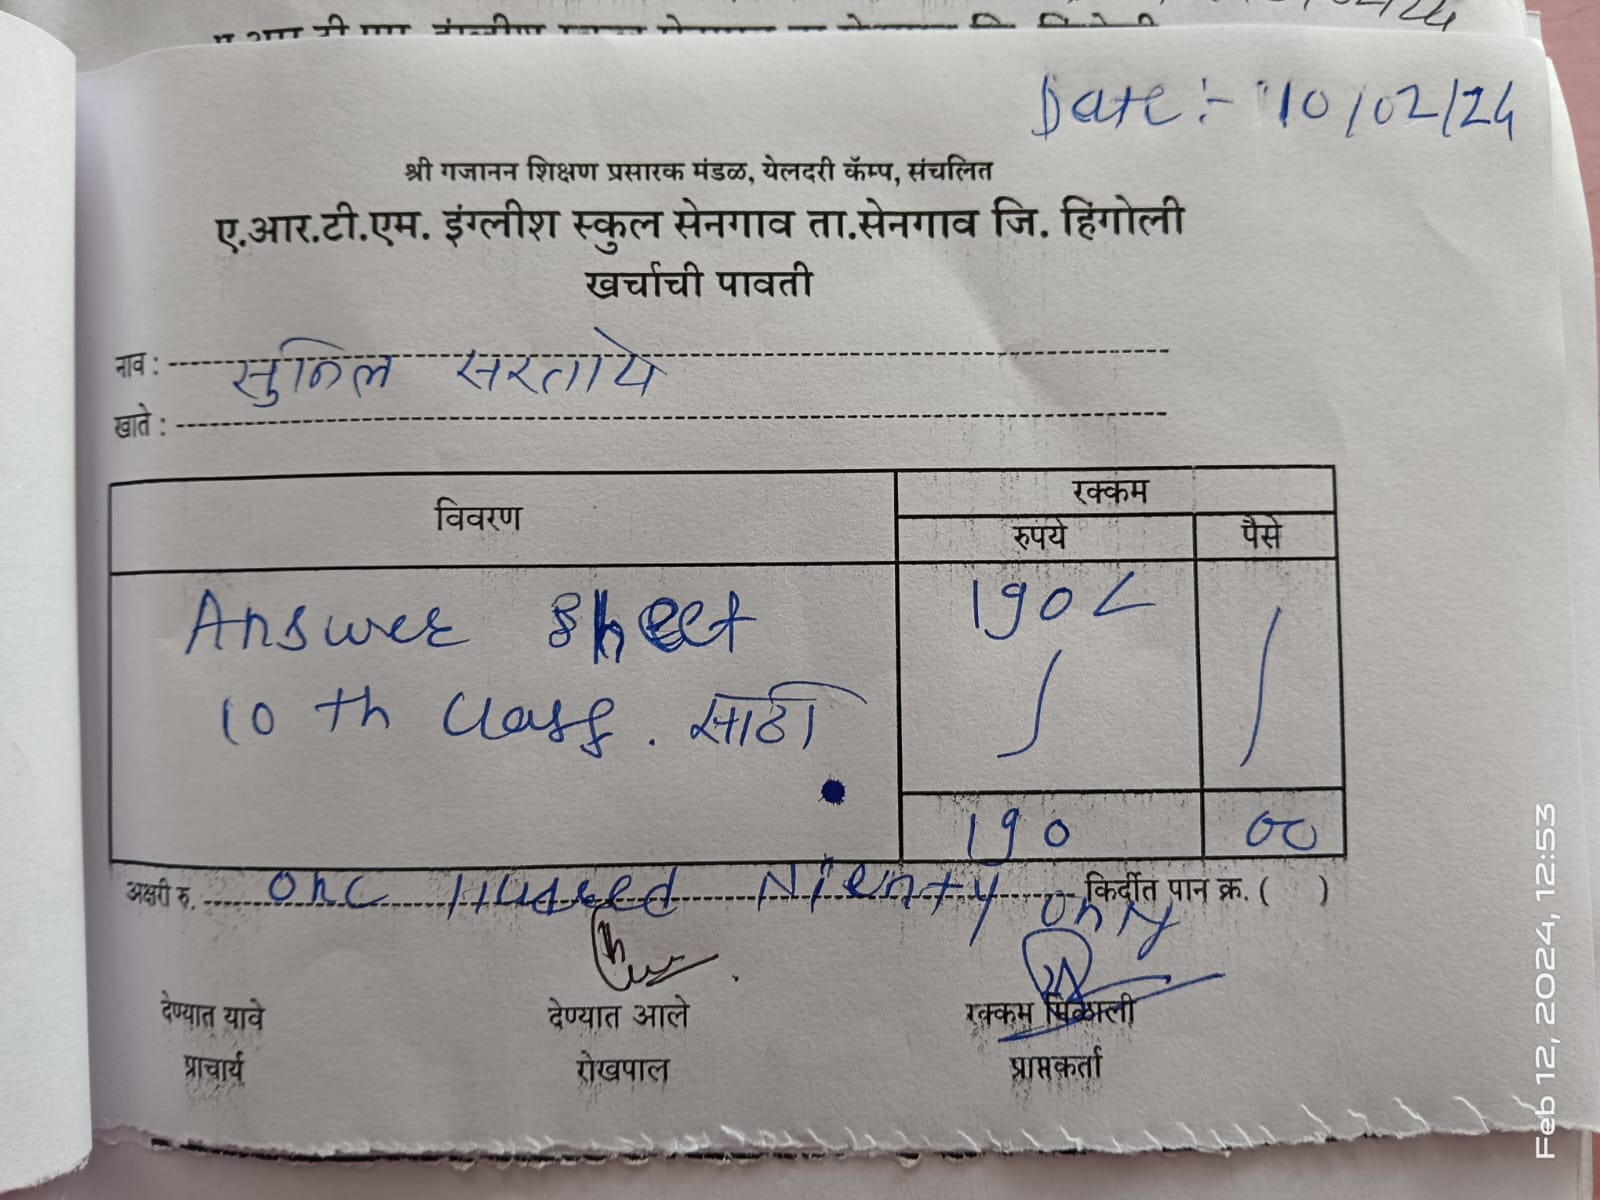 Date :- 10/02/24
श्री गजानन शिक्षण प्रसारक मंडळ, येलदरी कॅम्प, संचलित
ए.आर.टी.एम. इंग्लीश स्कुल सेनगाव ता.सेनगाव जि. हिंगोली
खर्चाची पावती
नाव : सुनिल सरताये
खाते :
विवरण
रक्कम
रुपये पैसे
Answer Sheet 190
10 th class. साठी
190 00
अक्षरी रु. One Hundred Nienty only किर्दीत पान क्र. ( )
देण्यात यावे देण्यात आले रक्कम मिळाली
प्राचार्य रोखपाल प्राप्तकर्ता
Feb 12, 2024, 12:53